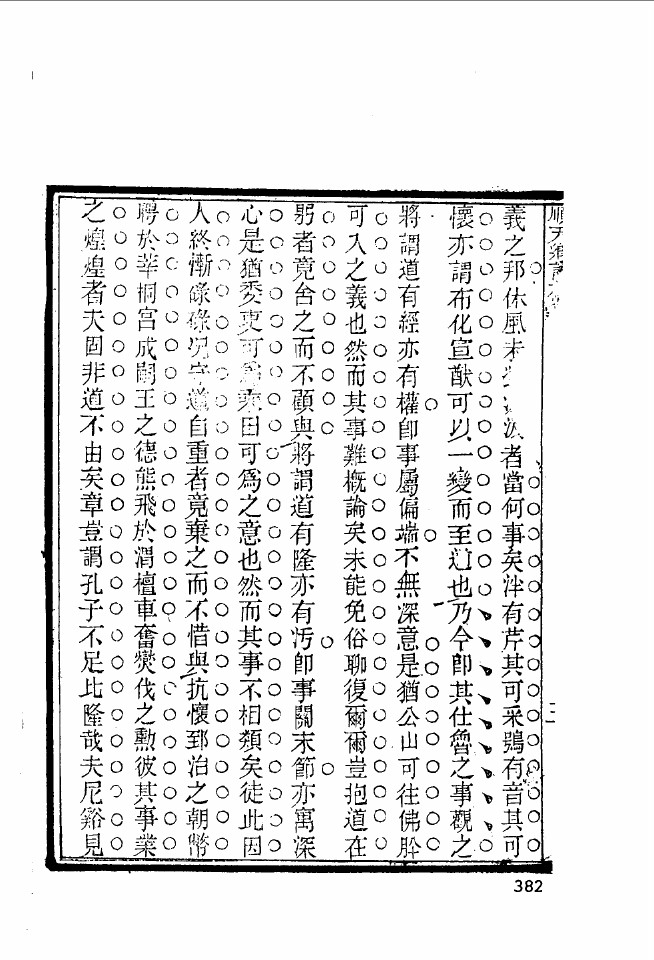 順天鄉試
二
義之邦休風未者當何事矣泮有芹其可采鴞有音其可
懷亦謂布化宣猷可以一變而至道也乃今卽其仕魯之事觀之
將謂道有經亦有權卽事屬偏端不無深意是猶公山可往佛肸
可入之義也然而其事難概論矣未能免俗聊復爾爾豈抱道在
躬者竟舍之而不顧與將謂道有隆亦有污卽事關末節亦寓深
心是猶委吏可爲乘田可爲之意也然而其事不相類矣徒此因
人終慚碌碌況守道自重者竟棄之而不惜與抗懷郅治之朝幣
聘於莘桐宮成嗣王之德熊飛於渭檀車奮燮伐之勳彼其事業
之煌煌者夫固非道不由矣章豈謂孔子不足比隆哉夫尼谿見
382